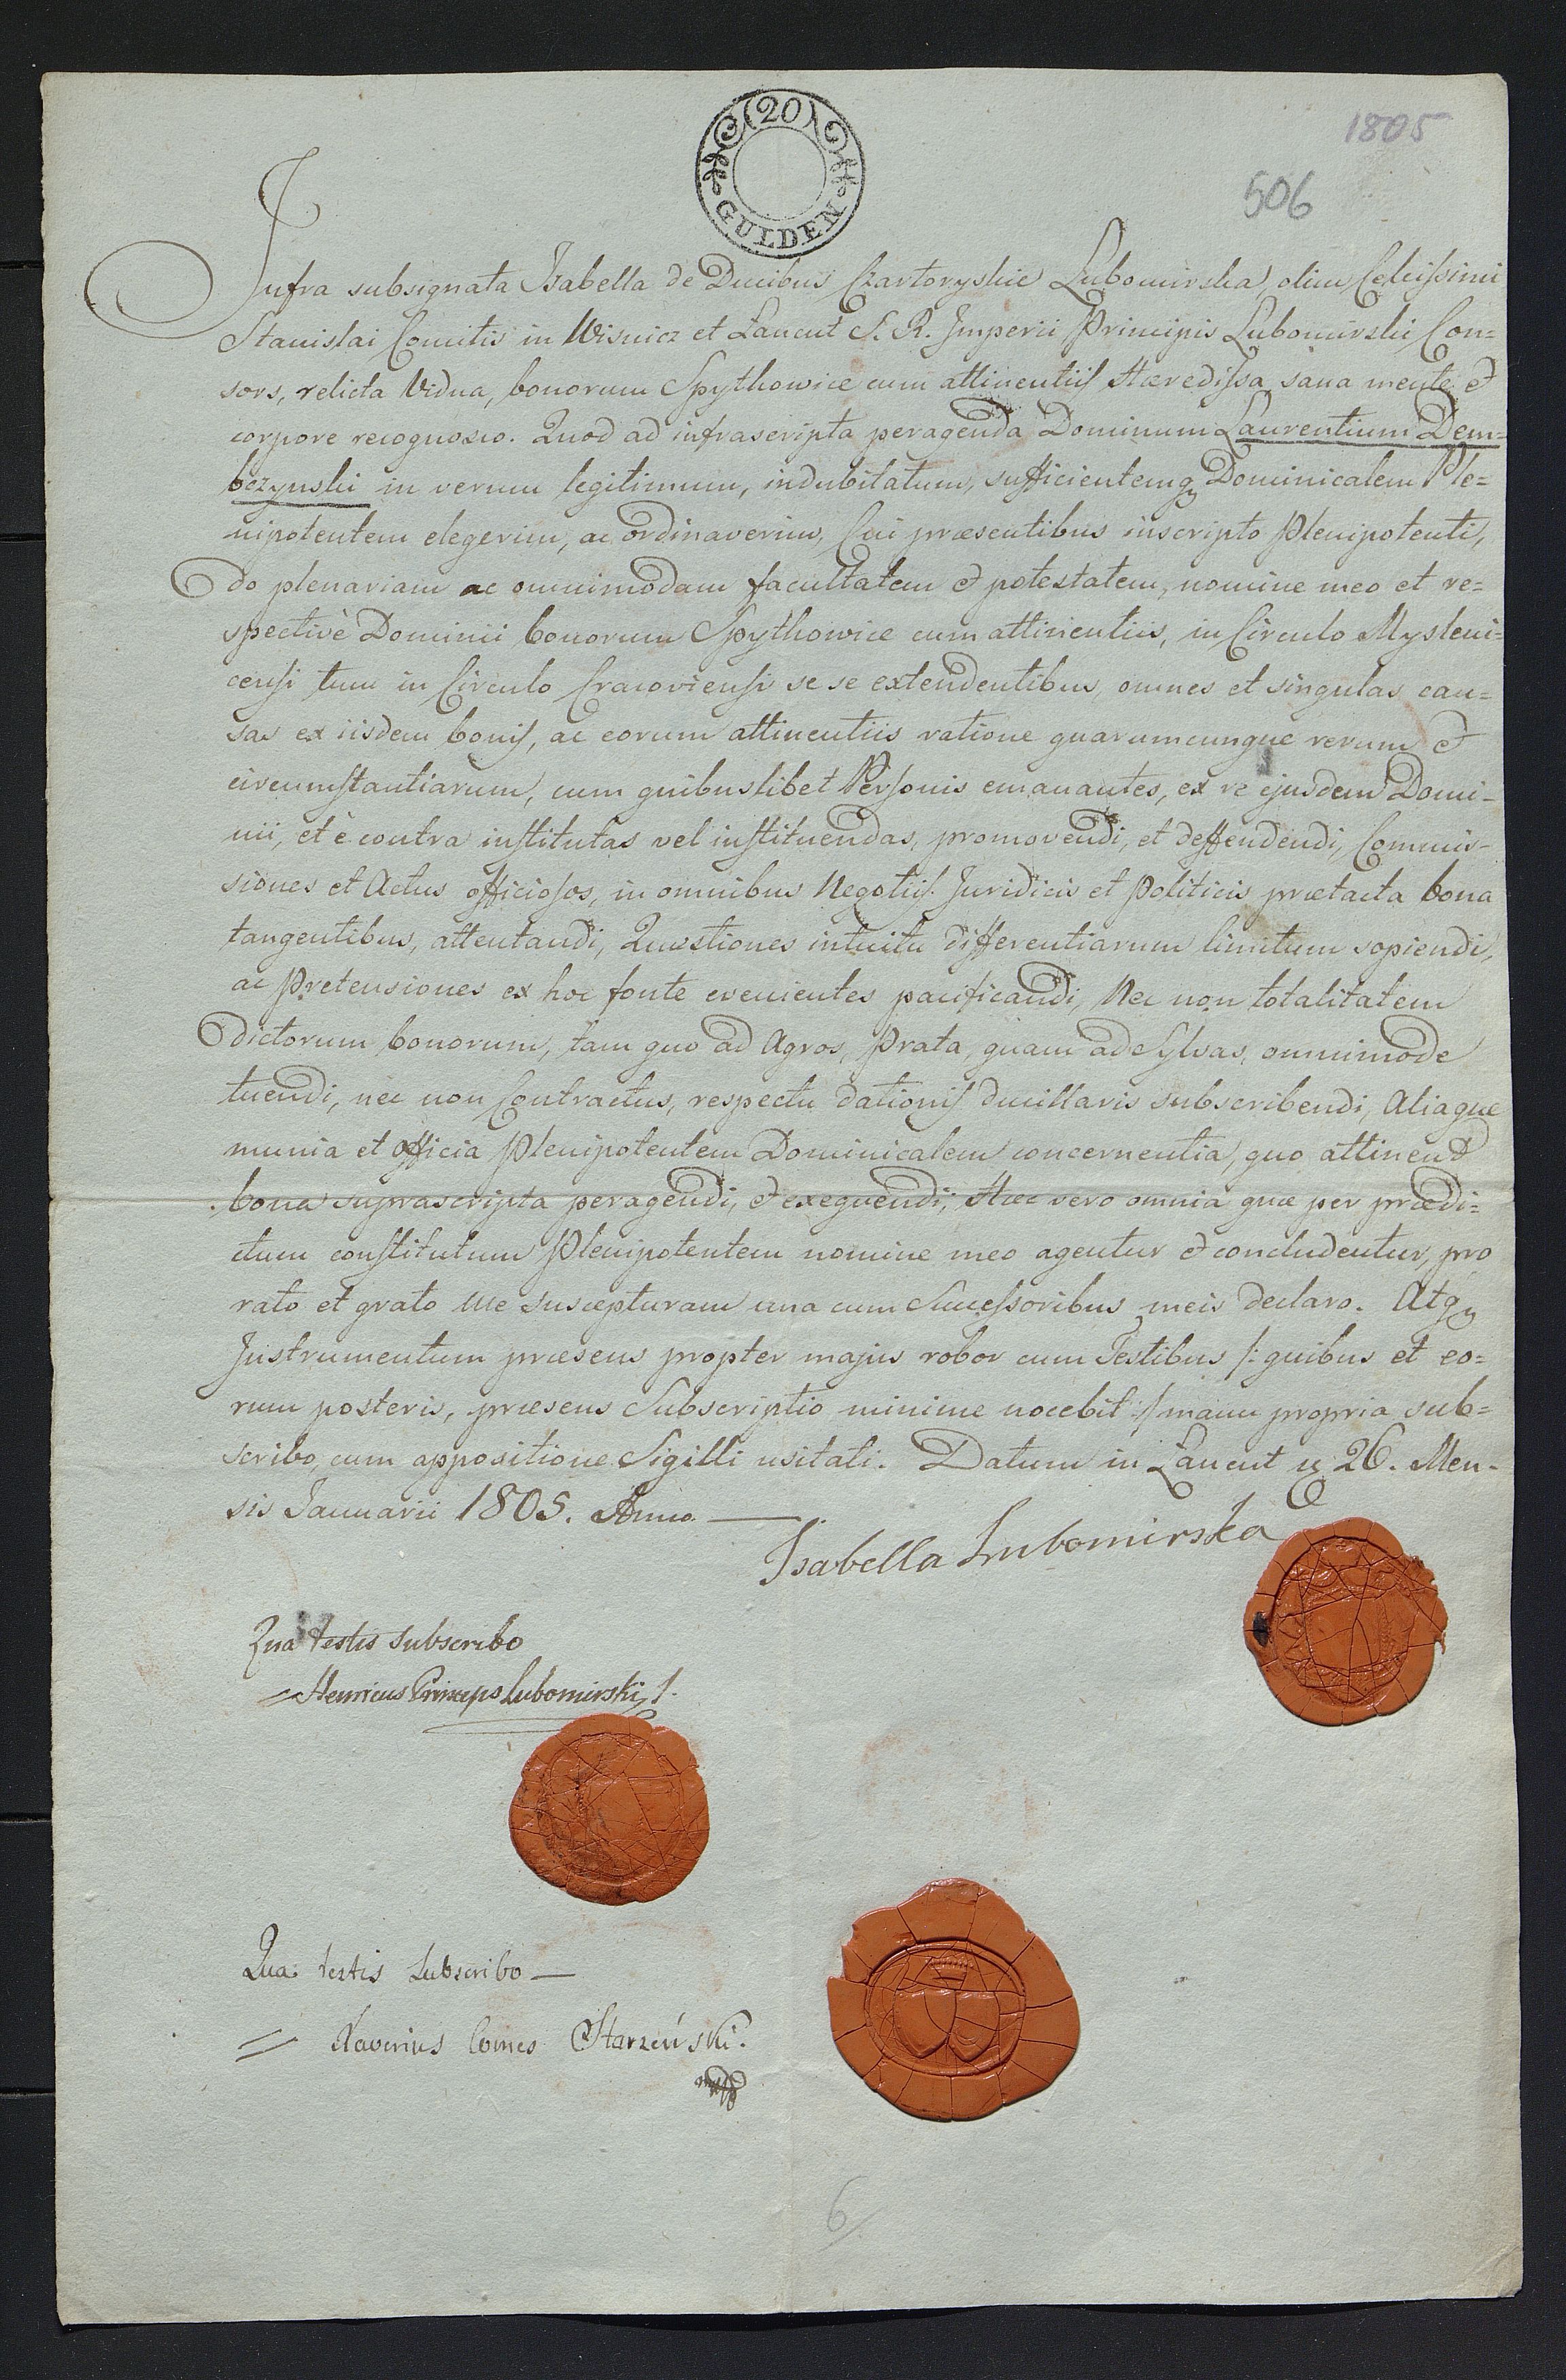 (20)
GULDEN
1805
506
Infra subsignata Isabella de Ducibus Czartoryskie Lubomirska, olim Celcissimi
Stanislai Comitis in Wisnicz et Lancut S. R. Imperii Principis Lubomirski Con=
sors, relicta Vidua, bonorum Spythowice cum attinentiis Hæredissa, sana mente et
corpore recognosco. Quod ad infrascripta peragenda Dominum Laurentium Dem=
bczynski in verum legitimum, indubitatum, sufficientemq3 Dominicalem Ple=
nipotentem elegerim, ac ordinaverim, Cui præsentibus inscripto Plenipotenti,
do plenariam ac omnimodam facultatem et potestatem, nomine meo et re=
spectivè Dominii bonorum Spythowice cum attinentiis, in Circulo Mysleni=
censi tum in Circulo Cracoviensi se se extendentibus, omnes et singulas cau=
sas ex iisdem bonis, ac eorum attinentiis ratione quarumcunque rerum et
circumstantiarum, cum quibuslibet Personis emanantes, ex re ejusdem Domi-
nii, et è contra institutas vel instituendas, promovendi, et deffendendi, Commis-
siones et Actus officiosos, in omnibus Negotiis Juridicis et Politicis prætacta bona
tangentibus, attentandi, Quæstiones intuitu differentiarum limitum sopiendi,
ac Pretensiones ex hoc fonte evenientes pacificandi, Nec non totalitatem
dictorum bonorum, tam quo ad Agros, Prata, quam ad Sylvas, omnimode
tuendi, nec non Contractus, respectu dationis ducillaris subscribendi, Aliaque
munia et officia Plenipotentem Dominicalem concernentia, quo attinend
bona suprascripta peragendi, et exequendi; Hæc vero omnia quæ per prædi=
ctum constitutum Plenipotentem nomine meo agentur et concludentur, pro
rato et grato Me suscepturam una cum Successoribus meis declaro. Atq3
Instrumentum præsens propter majus robor cum Testibus /: quibus et eo=
rum posteris, præsens Subscriptio minime nocebit :/ manu propria sub=
scribo, cum appositione Sigilli usitati. Datum in Lancut 26. Men-
sis Januarii 1805. Anno
Isabella Lubomirska
Qua testis subscribo
Henricus Princeps Lubomirski
Qua testis Subscribo —
= Xaverius Comes Starzeński.
6